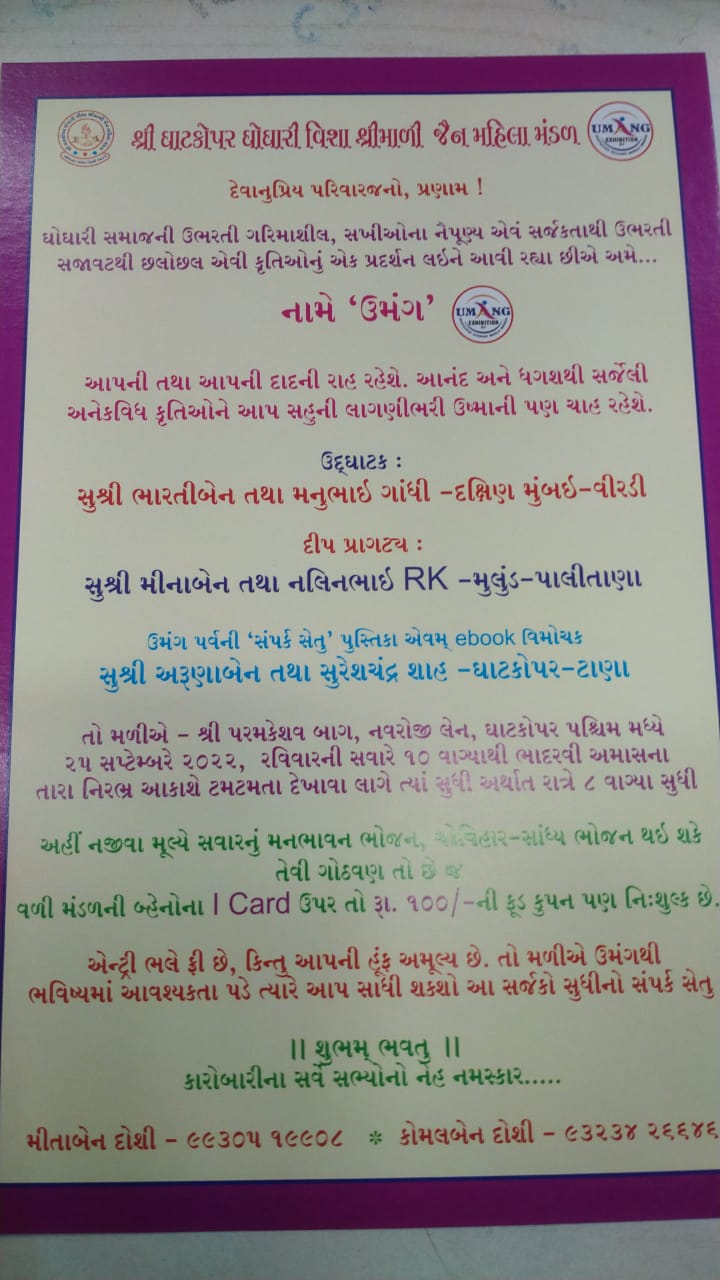 શ્રી ઘાટકોપર ઘોઘારી વિશા શ્રીમાળી જૈન મહિલા મંડળ
UMANG
EXHIBITION
દેવાનુપ્રિય પરિવારજનો, પ્રણામ !
ઘોઘારી સમાજની ઉભરતી ગરિમાશીલ, સખીઓના નૈપૂણ્ય એવં સર્જકતાથી ઉભરતી
સજાવટથી છલોછલ એવી કૃતિઓનું એક પ્રદર્શન લઇને આવી રહ્યા છીએ અમે...
નામે ‘ઉમંગ’
UMANG
EXHIBITION
આપની તથા આપની દાદની રાહ રહેશે. આનંદ અને ધગશથી સર્જેલી
અનેકવિધ કૃતિઓને આપ સહુની લાગણીભરી ઉષ્માની પણ ચાહ રહેશે.
ઉદ્ઘાટક :
સુશ્રી ભારતીબેન તથા મનુભાઇ ગાંધી -દક્ષિણ મુંબઇ-વીરડી
દીપ પ્રાગટ્ય :
સુશ્રી મીનાબેન તથા નલિનભાઇ RK -મુલુંડ-પાલીતાણા
ઉમંગ પર્વની ‘સંપર્ક સેતુ’ પુસ્તિકા એવમ્ ebook વિમોચક
સુશ્રી અરૂણાબેન તથા સુરેશચંદ્ર શાહ -ઘાટકોપર-ટાણા
તો મળીએ - શ્રી પરમકેશવ બાગ, નવરોજી લેન, ઘાટકોપર પશ્ચિમ મધ્યે
૨૫ સપ્ટેમ્બરે ૨૦૨૨, રવિવારની સવારે ૧૦ વાગ્યાથી ભાદરવી અમાસના
તારા નિરભ્ર આકાશે ટમટમતા દેખાવા લાગે ત્યાં સુધી અર્થાત રાત્રે ૮ વાગ્યા સુધી
અહીં નજીવા મૂલ્યે સવારનું મનભાવન ભોજન, ચોવિહાર-સાંધ્ય ભોજન થઇ શકે
તેવી ગોઠવણ તો છે જ
વળી મંડળની બ્હેનોના I Card ઉપર તો રૂા. ૧૦૦/-ની ફૂડ કુપન પણ નિઃશુલ્ક છે.
એન્ટ્રી ભલે ફ્રી છે, કિન્તુ આપની હૂંફ અમૂલ્ય છે. તો મળીએ ઉમંગથી
ભવિષ્યમાં આવશ્યકતા પડે ત્યારે આપ સાધી શકશો આ સર્જકો સુધીનો સંપર્ક સેતુ
।। શુભમ્ ભવતુ ।।
કારોબારીના સર્વે સભ્યોનો નેહ નમસ્કાર.....
મીતાબેન દોશી - ૯૯૩૦૫ ૧૯૯૦૮ * કોમલબેન દોશી - ૯૩૨૩૪ ૨૬૬૪૬